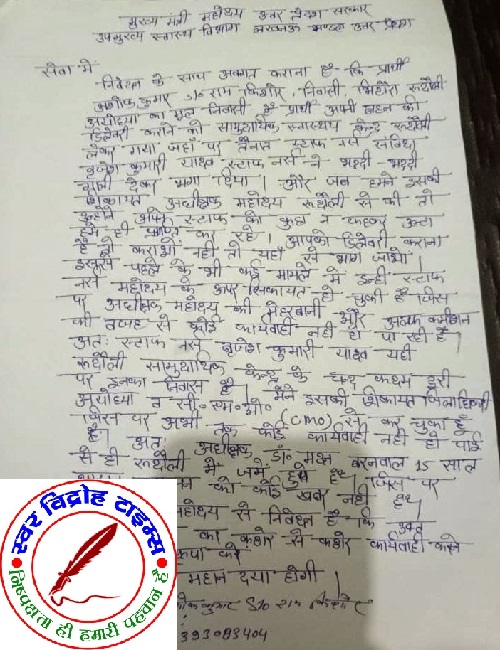 मुख्य मंत्री महोदय उत्तर प्रदेश सरकार
उपमुख्य स्वास्थ्य विभाग लखनऊ उत्तर प्रदेश
सेवा में
निवेदन के साथ अवगत कराना है कि प्रार्थी
अशोक कुमार S/o राम किशोर निवासी रूदौली
अयोध्या का मूल निवासी है प्रार्थी अपनी बहन की
डिलेवरी कराने को सामुदायिक स्वास्थ्य केन्द्र रूदौली
लेकर गया जहां पर तैनात स्टाफ नर्स
कुमारी यादव स्टाफ नर्स ने भद्दी भद्दी
देकर भगा दिया। और जब हमने इसकी
शिकायत अधीक्षक महोदय रूदौली से की तो
उन्होंने अपने स्टाफ को कुछ न कहकर उल्टा
हमे ही कर रहे। आपको डिलेवरी कराना
है तो कराओ नहीं तो यहाँ से भाग जाओ।
इससे पहले के भी कई मामले में इन्ही स्टाफ
नर्स महोदय के ऊपर शिकायत हो चुकी है जिस
पर अधीक्षक महोदय की मेहरबानी और
की वजह से कोई कार्यवाही नही हो पा रही है
अतः स्टाफ नर्स कुमारी यादव यही
रूदौली सामुदायिक केन्द्र के चन्द कदम दूरी
पर इनका निवास है। मैने इसकी शिकायत जिलाधिकारी
अयोध्या व सी० एम० ओ० (CMO) से कर चुका हूँ
जिस पर अभी तक कोई कार्यवाही नही हो पाई
है। अतः अधीक्षक डॉ० मदन बरनवाल 15 साल
से ही रूदौली में जमें हुये है। जिस पर
को कोई खबर नही है।
महोदय से निवेदन है कि उक्त
का कठोर से कठोर कार्यवाही करने
कृपा करें
महान दया होगी।
कुमार S/o राम किशोर
393083404
स्वर विद्रोह टाइम्स
निष्पक्षता ही हमारी पहचान है